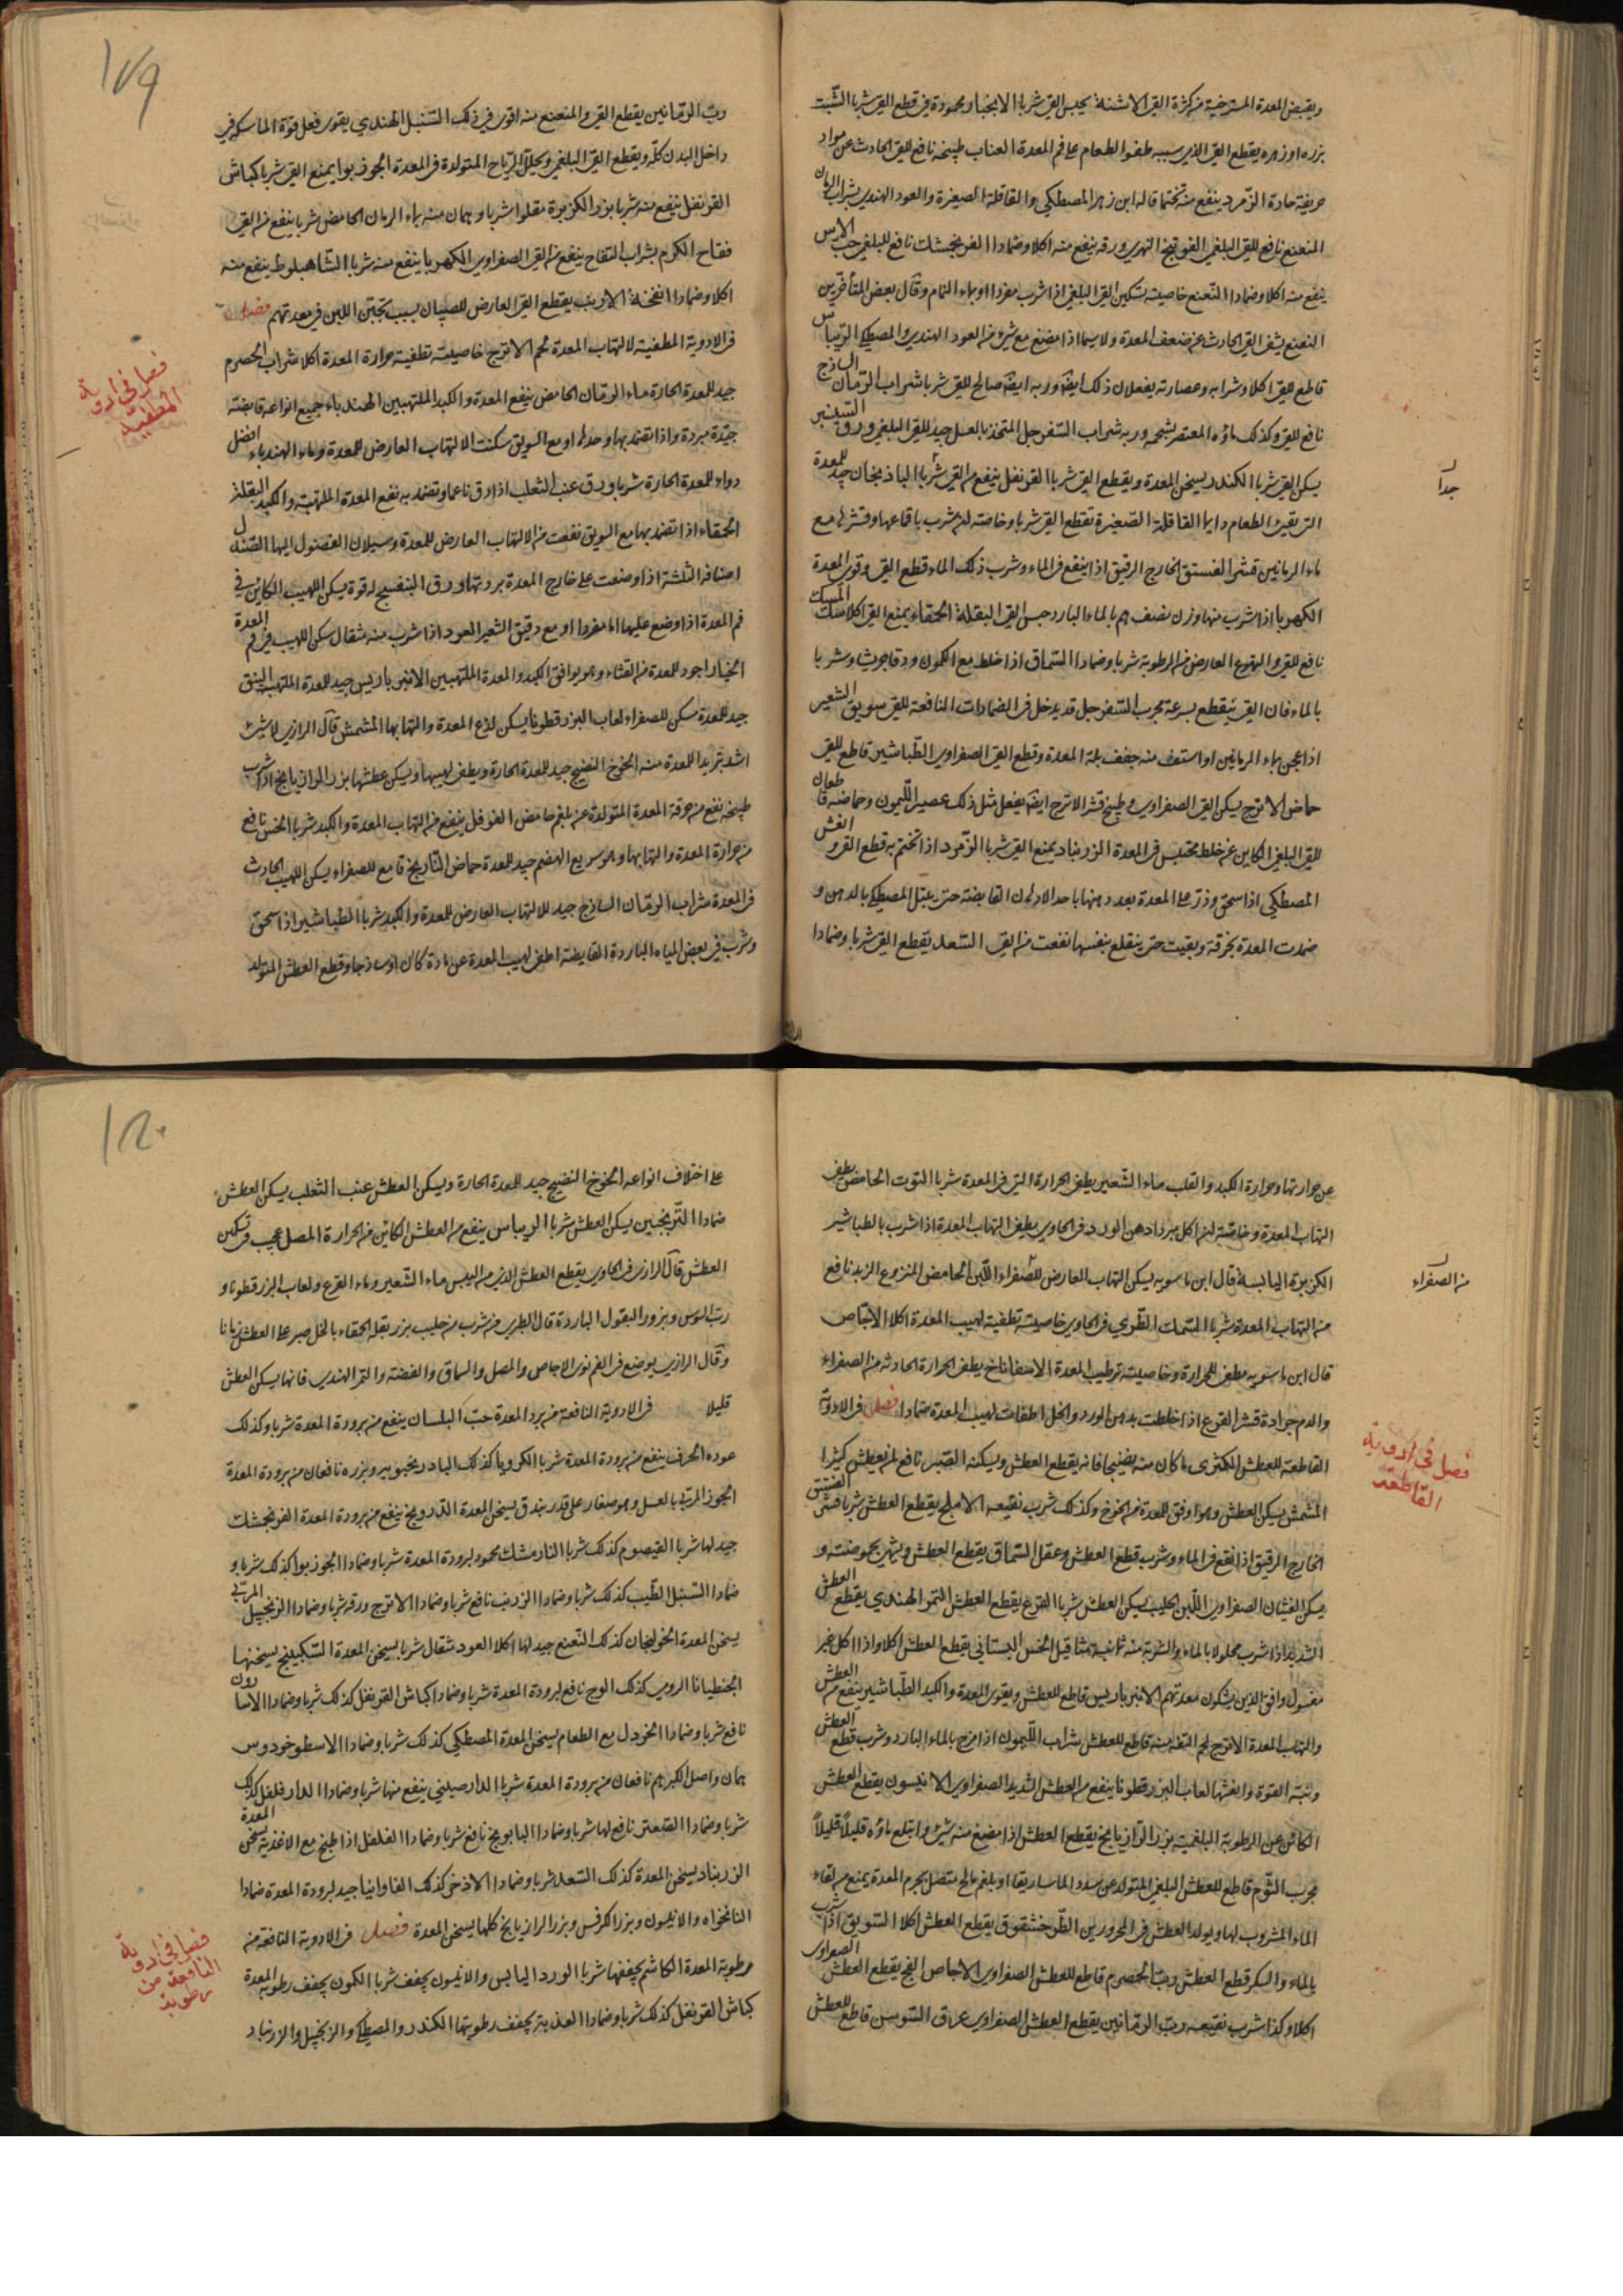 ويقبض المعدة المسترخية من كثرة القئ الاشنة يحبس القئ شربا الانجبار محمودة في قطع القئ شربا الشبت
بزره او زهره يقطع القئ الذي سببه طفو الطعام على فم المعدة العناب طبيخه نافع للقئ الحادث عن مواد
حريفة حادة الزمرد ينفع منه تختما قاله ابن زهر المصطكى والقاقلة الصغيرة والعود الهندي بشراب الرمان
المنعنع نافع للقئ البلغمي الفوتنج النهري ورقه ينفع منه اكلا وضمادا الفرنجمشك نافع للبلغمي حب الاس
ينفع منه اكلا وضمادا النعنع خاصيته تسكين القئ البلغمي اذا شرب مفردا او بماء النمام وقال بعض المتأخرين
النعنع يشفي القئ الحادث عن ضعف المعدة ولا سيما اذا مضغ مع شئ من العود الهندي والمصطكى الريباس
قاطع للقئ اكلا وشرابه وعصارته يفعلان ذلك ايضا وربه ايضا صالح للقئ شربا شراب الرمان الساذج
نافع للقئ وكذلك ماؤه المعتصر بشحمه وربه شراب السفرجل المتخذ بالعسل جيد للقئ البلغمي ورق السيسنبر
يسكن القئ شربا الكندر يسخن المعدة ويقطع القئ شربا القرنفل ينفع من القئ شربا الباذنجان جيد للمعدة
التي تقيئ الطعام دايما القاقلة الصغيرة تقطع القئ شربا وخاصته لمن شرب باقماعها وقشرها مع
ماء الرمانين قشر الفستق الخارج الرقيق اذا ينقع في الماء وشرب ذلك الماء قطع القئ وقوى المعدة
الكهربا اذا شرب منها وزن نصف درهم بالماء البارد حبس القئ البقلة الحمقاء يمنع القئ اكلا المسك
نافع للقئ والتهوع العارض من الرطوبة شربا وضمادا السماق اذا خلط مع الكمون ودقا جريشا وشربا
بالماء فان القئ ينقطع بسرعة مجرب السفرجل قد يدخل في الضمادات النافعة للقئ سويق الشعير
اذا عجن بماء الرمانين او استف منه جفف بلة المعدة وقطع القئ الصفراوي الطباشير قاطع للقئ
حماض الاترج يسكن القئ الصفراوي وطبيخ قشر الاترج ايضا يفعل مثل ذلك عصير الليمون وحماضه قاطعان
للقئ البلغمي الكاين عن خلط محتبس في المعدة الزرنباد يمنع القئ شربا الزمرد اذا تختم به قطع القئ والغش
المصطكى اذا سحق وذر على المعدة بعد دهنها باحد الادهان القابضة حتى يبتل المصطكى بالدهن و
ضمدت المعدة بخرقة وبقيت حتى ينقلع بنفسها نفعت من القئ السعد يقطع القئ شربا وضمادا
جدا
١٧٩
رب الرمانين يقطع القئ والمنعنع منه اقوى في ذلك السنبل الهندي يقوى فعل قوة الماسكة في
داخل البدن كله ويقطع القئ البلغمي ويحلل الرياح المتولدة في المعدة الجوز بوا يمنع القئ شربا كباش
القرنفل ينفع منه شربا بزر الكزبرة مقلوا شربا درهمان منه بماء الرمان الحامض شربا ينفع من القئ
فقاح الكرم بشراب التفاح ينفع من القئ الصفراوي الكهربا ينفع منه شربا الشاهبلوط ينفع منه
اكلا وضمادا انفخة الارنب يقطع القئ العارض للصبيان بسبب تجبن اللبن في معدتهم فصل
في الادوية المطفية لالتهاب المعدة لحم الاترج خاصيته تطفية حرارة المعدة اكلا شراب الحصرم
جيد للمعدة الحارة ماء الرمان الحامض ينفع المعدة والكبد الملتهبين الهندباء جميع انواعه قابضة
جيدة مبردة واذا تضمد بها وحدها او مع السويق سكنت الالتهاب العارض للمعدة وماء الهندباء افضل
دواء للمعدة الحارة شربا ورق عنب الثعلب اذا دق ناعما وتضمد به نفع المعدة الملتهبة والكبد البقلة
الحمقاء اذا تضمد بها مع السويق نفعت من الالتهاب العارض للمعدة وسيلان الفضول اليها الصندل
اصنافه الثلثة اذا وضعت على خارج المعدة بردتها ورق البنفسج له قوة يسكن اللهيب الكاين في
فم المعدة اذا وضع عليها اما مفردا او مع دقيق الشعير العود اذا شرب منه مثقال سكن اللهيب في فم المعدة
الخيار اجود للمعدة من القثاء وهو يوافق الكبد والمعدة الملتهبين الانبرباريس جيد للمعدة الملتهبة النبق
جيد للمعدة مسكن للصفراء لعاب البزرقطونا يسكن لذع المعدة والتهابها المشمش قال الرازي لا شئ
اشد تبريدا للمعدة منه الخوخ النضيج جيد للمعدة الحارة ويطفى لهيبها ويسكن عطشها بزر الرازيانج اذا شرب
طبيخه نفع من حرقة المعدة المتولدة عن بلغم حامض الفوفل ينفع من التهاب المعدة والكبد شربا الخس نافع
من حرارة المعدة والتهابها وهو سريع الهضم جيد للمعدة حماض النارنج قامع للصفراء يسكن اللهيب الحادث
في المعدة شراب الرمان الساذج جيد للالتهاب العارض للمعدة والكبد شربا الطباشير اذا سحق
وشرب في بعض المياه الباردة القابضة اطفى لهيب المعدة عن مادة كان او ساذجا وقطع العطش المتولد
فصل في ادوية
المطفية
عن حرارتها وحرارة الكبد والقلب ماء الشعير يطفى الحرارة التي في المعدة شربا التوت الحامض يطفى
التهاب المعدة وخاصة لمن اكل مبردا دهن الورد في الحاوي يطفى التهاب المعدة اذا شرب بالطباشير
الكزبرة اليابسة قال ابن ماسويه يسكن التهاب العارض للصفراء اللبن الحامض المنزوع الزبد نافع
من التهاب المعدة شربا السمك الطري في الحاوي خاصيته تطفية لهيب المعدة اكلا الاجاص
قال ابن ماسويه مطفى للحرارة وخاصيته ترطيب المعدة الاسفاناخ يطفى الحرارة الحادثة من الصفراء
والدم جرادة قشر القرع اذا خلطت بدهن الورد والخل اطفات لهيب المعدة ضمادا فصل في الادوية
القاطعة للعطش الكمثرى ما كان منه نضيجا فانه يقطع العطش ويسكنه الصبر نافع لمن يعطش كثيرا
المشمش يسكن العطش وهو اوفق للمعدة من الخوخ وكذلك شرب نقيعه الاملج يقطع العطش شربا قشر الفستق
الخارج الرقيق اذا نقع في الماء وشرب قطع العطش وعقل السماق يقطع العطش ويشهى بحموضته و
يسكن الغثيان الصفراوي اللبن الحليب يسكن العطش شربا القرع يقطع العطش التمر الهندي يقطع العطش
الشديد اذا شرب محلولا بالماء والشربة منه ثمانية مثاقيل الخس البستاني يقطع العطش اكلا واذا اكل غير
مغسول وافق الذين يشكون معدتهم الانبرباريس قاطع للعطش ويقوى المعدة والكبد الطباشير ينفع من العطش
والتهاب المعدة الاترج لحم التفه منه قاطع للعطش شراب الليمون اذا مزج بالماء البارد وشرب قطع العطش
ونبه القوة وانعشها لعاب البزرقطونا ينفع من العطش الشديد الصفراوي الانيسون يقطع العطش
الكائن عن الرطوبة البلغمية بزر الرازيانج يقطع العطش اذا مضغ منه شئ وابتلع ماؤه قليلا قليلا
مجرب الثوم قاطع للعطش البلغمي المتولد عن سدد الماساريقا او بلغم مالح متصل بجرم المعدة يمنع من لقاء
الماء المشروب لها ويولد العطش في المحرورين الطرخشقوق يقطع العطش اكلا السويق اذا شرب
بالماء والسكر قطع العطش رب الحصرم قاطع للعطش الصفراوي الاجاص الفج يقطع العطش الصفراوي
اكلا وكذا شرب نقيعه رب الرمانين يقطع العطش الصفراوي عرق السوس قاطع للعطش
من الصفراء
فصل في ادوية
القاطعة
١٨٠
على اختلاف انواعه الخوخ النضيج جيد للمعدة الحارة ويسكن العطش عنب الثعلب يسكن العطش
ضمادا الترنجبين يسكن العطش شربا الريباس ينفع من العطش الكائن من الحرارة المصل عجيب في تسكين
العطش قال الرازي في الحاوي يقطع العطش الذي من اليبس ماء الشعير وماء القرع ولعاب البزرقطونا و
رب السوس وبزور البقول الباردة قال الطبري من شرب من حليب بزر بقلة الحمقاء بالخل صبر على العطش زمانا
وقال الرازي يوضع في الفم نوى الاجاص والمصل والسماق والفضة والتمر الهندي فانها يسكن العطش
قليلا في الادوية النافعة من برد المعدة حب البلسان ينفع من برودة المعدة شربا وكذلك
عوده الحرف ينفع من برودة المعدة شربا الكرويا كذلك البادرنجبويه وبزره نافعان من برودة المعدة
الجوز المربى بالعسل وهو صغار على قدر بندق يسخن المعدة الدرونج ينفع من برودة المعدة الفرنجمشك
جيد لها شربا القيصوم كذلك شربا النارمشك محمود لبرودة المعدة شربا وضمادا الجوز بوا كذلك شربا و
ضمادا السنبل الطيب كذلك شربا وضمادا الزرنب نافع شربا وضمادا الاترج ورقه شربا وضمادا الزنجبيل المربى
يسخن المعدة الخولنجان كذلك النعنع جيد لها اكلا العود مثقال شربا يسخن المعدة السكبينج يسخنها
الجنطيانا الرومي كذلك الوج نافع لبرودة المعدة شربا وضمادا كباش القرنفل كذلك شربا وضمادا الاسارون
نافع شربا وضمادا الخردل مع الطعام يسخن المعدة المصطكى كذلك شربا وضمادا الاسطوخودوس
درهمان واصل الكبر درهم نافعان من برودة المعدة شربا الدارصيني ينفع منها شربا وضمادا الدارفلفل كذلك
شربا وضمادا الصعتر نافع لها شربا وضمادا البابونج نافع شربا وضمادا الفلفل اذا طبخ مع الاغذية يسخن المعدة
الزرنباد يسخن المعدة كذلك السعد شربا وضمادا الاذخر كذلك الفاوانيا جيد لبرودة المعدة ضمادا
النانخواه والانيسون وبزر الكرفس وبزر الرازيانج كلها يسخن المعدة فصل في الادوية النافعة من
رطوبة المعدة الكاشم يجففها شربا الورد اليابس والانيسون يجفف شربا الكمون يجفف رطوبة المعدة
كباش القرنفل كذلك شربا وضمادا العذبة يجفف رطوبتها الكندر والمصطكى والزنجبيل والزرنباد
فصل في ادوية
النافعة من
رطوبة